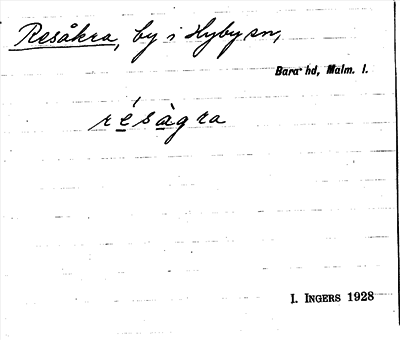 Resåkra, by i Hyby sn,
Bara hd, Malm. l.
résàgra
I. INGERS 1928